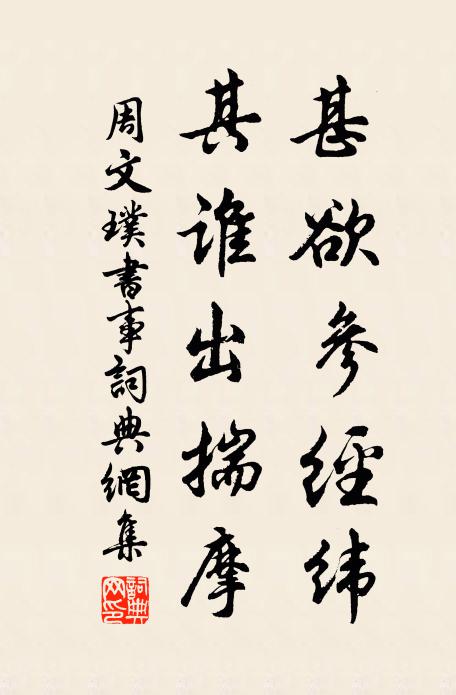 甚欲參經緯
其誰出揣摩
周文璞書事詞典網集
詞典网印